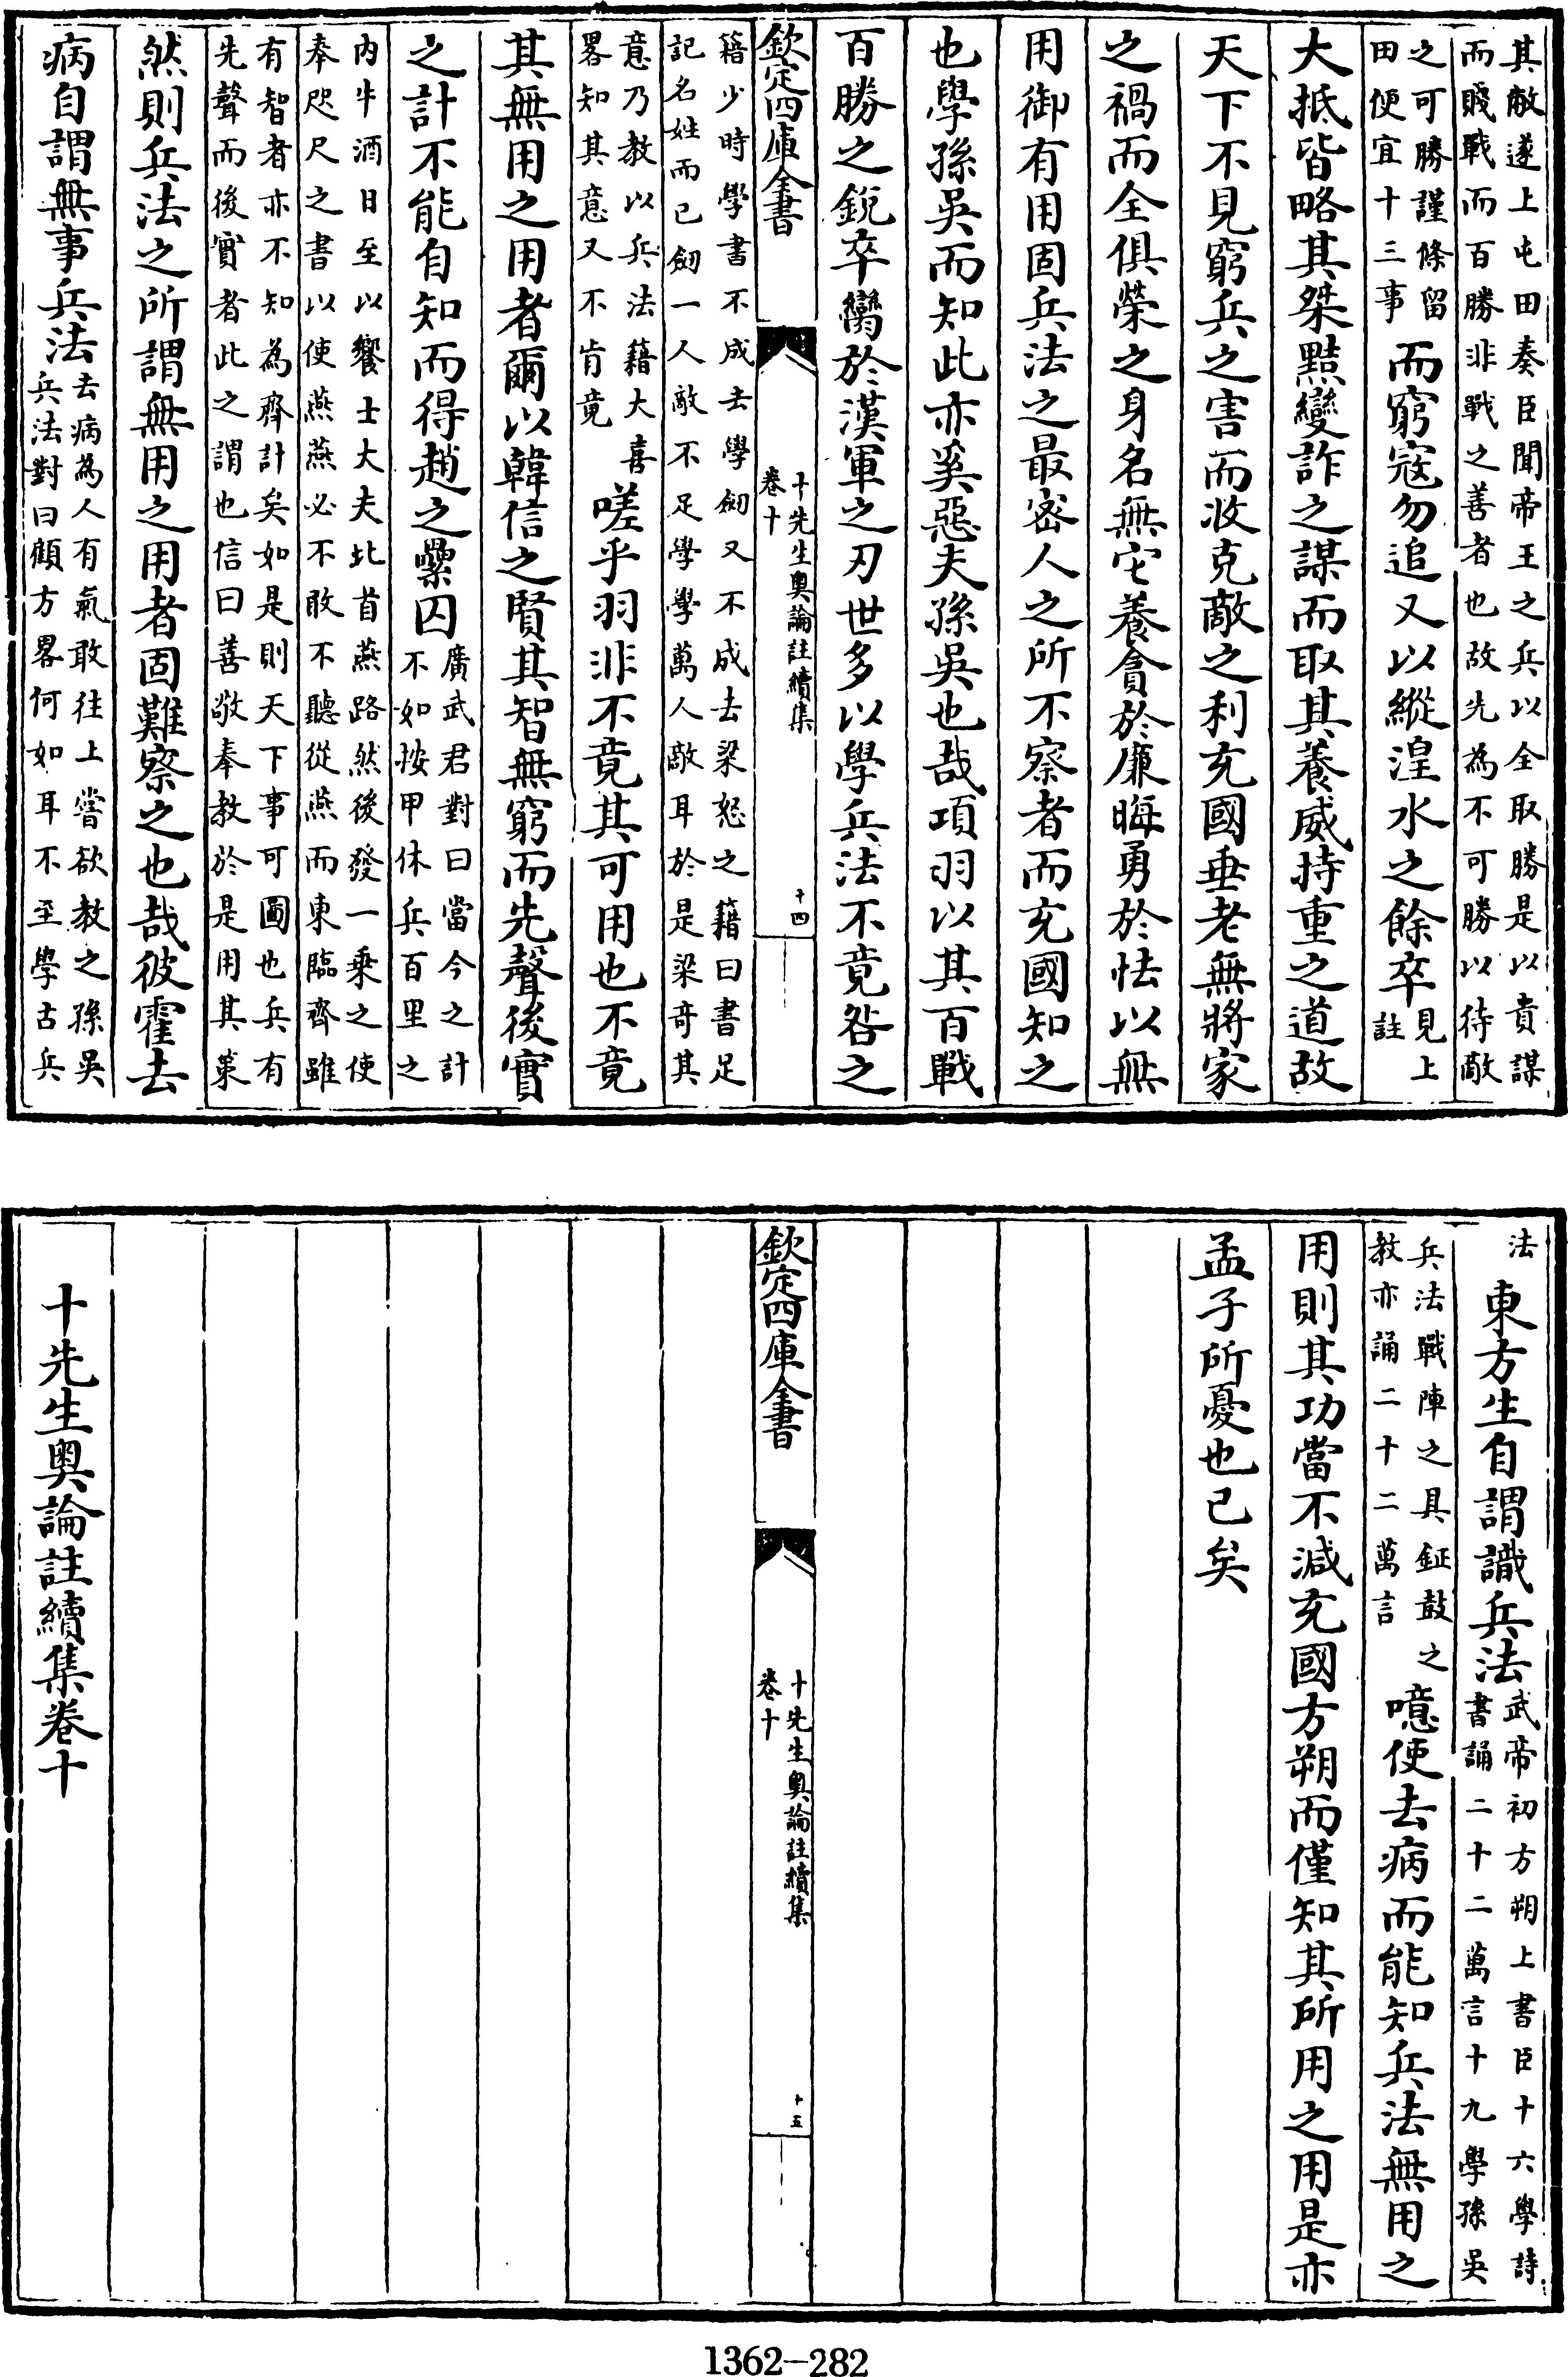 其敵遂上屯田奏臣聞帝王之兵以全取勝是以貴謀
而賤戰而百勝非戰之善者也故先為不可勝以待敵
之可勝謹條留
田便宜十三事
而窮寇勿追又以縱湟水之餘卒
見上
註
大抵皆略其桀黠變詐之謀而取其養威持重之道故
天下不見窮兵之害而收克敵之利充國垂老無將家
之禍而全俱榮之身名無它養貪於廉晦勇於怯以無
用御有用固兵法之最密人之所不察者而充國知之
也學孫吳而知此亦奚惡夫孫吳也哉項羽以其百戰
百勝之銳卒衂於漢軍之刃世多以學兵法不竟咎之
欽定四庫全書
十先生奧論註續集
卷十
十四
籍少時學書不成去學劒又不成去梁怒之籍曰書足
記名姓而已劒一人敵不足學學萬人敵耳於是梁奇其
意乃教以兵法籍大喜
畧知其意又不肯竟
嗟乎羽非不竟其可用也不竟
其無用之用者爾以韓信之賢其智無窮而先聲後實
之計不能自知而得趙之纍囚
廣武君對曰當今之計
不如按甲休兵百里之
內牛酒日至以饗士大夫北首燕路然後發一乘之使
奉咫尺之書以使燕燕必不敢不聽從燕而東臨齊雖
有智者亦不知為齊計矣如是則天下事可圖也兵有
先聲而後實者此之謂也信曰善敬奉教於是用其策
然則兵法之所謂無用之用者固難察之也哉彼霍去
病自謂無事兵法
去病為人有氣敢往上嘗欲教之孫吳
兵法對曰顧方畧何如耳不至學古兵
法
東方生自謂識兵法
武帝初方朔上書臣十六學詩
書誦二十二萬言十九學孫吳
兵法戰陣之具鉦鼓之
教亦誦二十二萬言
噫使去病而能知兵法無用之
用則其功當不減充國方朔而僅知其所用之用是亦
孟子所憂也已矣
欽定四庫全書
十先生奧論註續集
卷十
十五
十先生奧論註續集卷十
1362-282